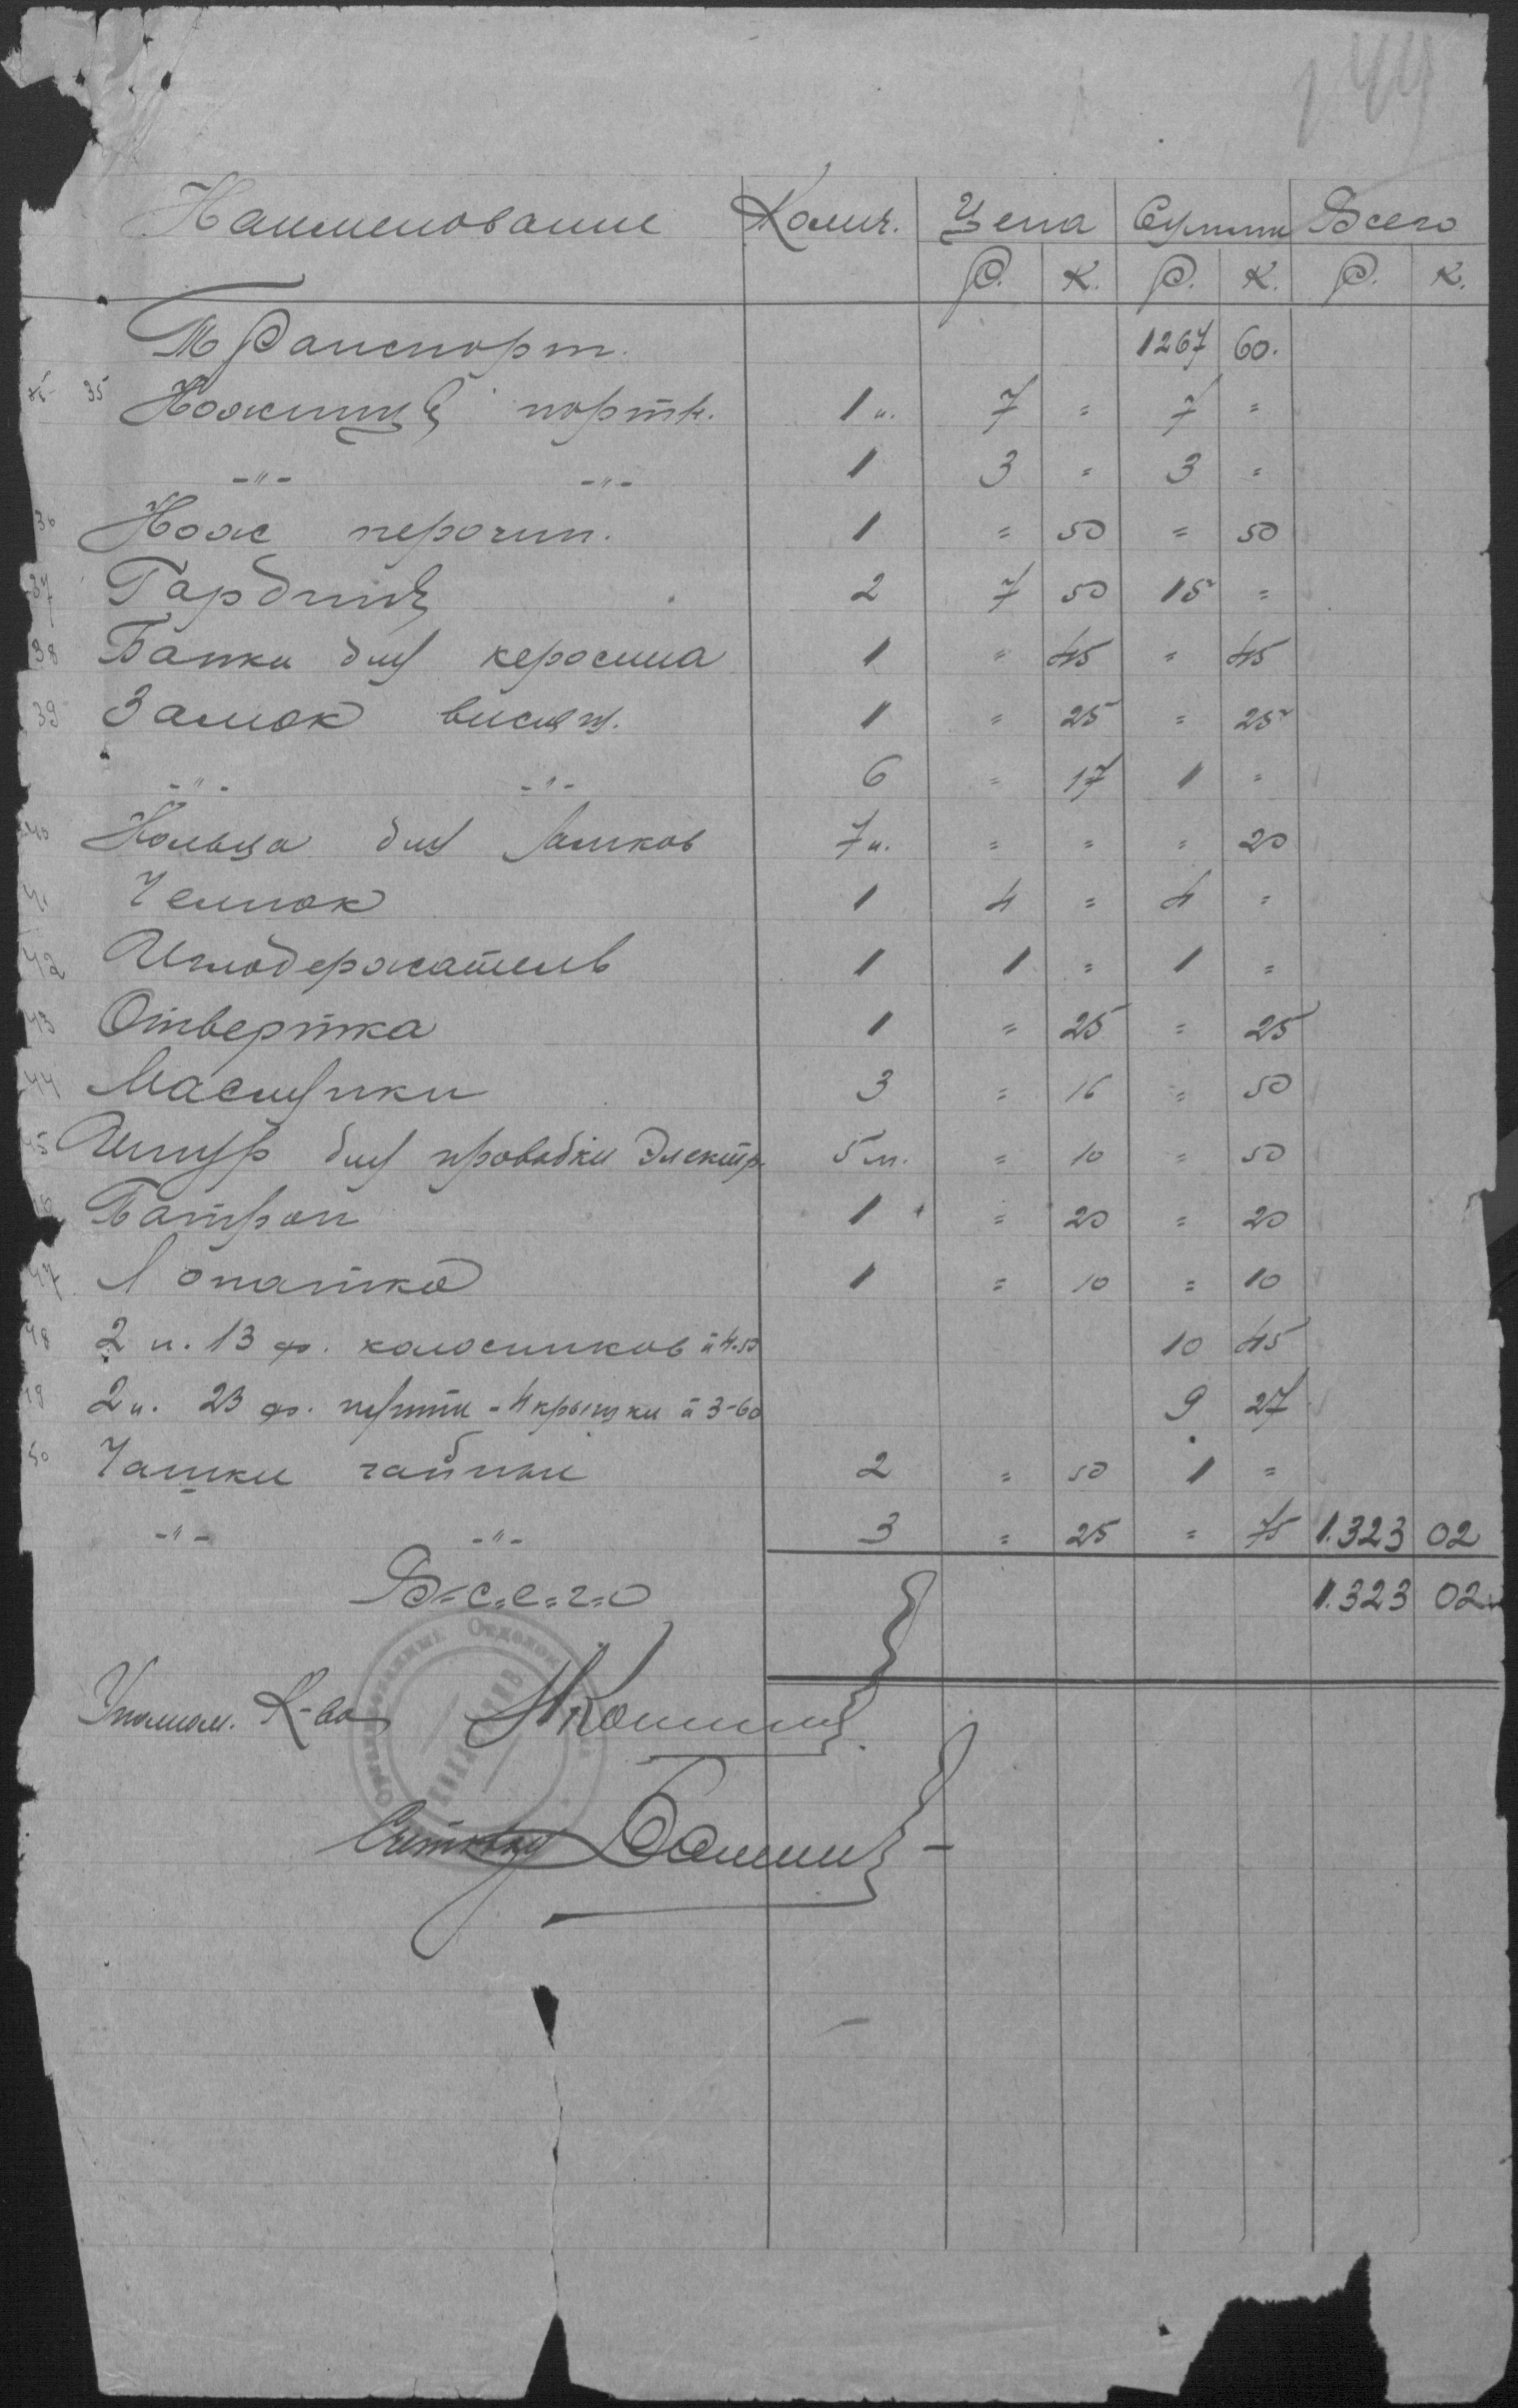 144
Наименование Колич. Цена Сумма Всего
Р. К. Р. К. Р. К.
Транспорт. 1267 60.
35 Ножницы портн. 1 п. 7 = 7 =
-"- -"- 1 3 = 3 =
36 Нож перочин. 1 = 50 = 50
37 Гардины 2 7 50 15 =
38 Банки для керосина 1 = 45 = 45
39 Замок висяч. 1 = 25 = 25
-"- -"- 6 = 17 1 =
40 Кольца для замков 7 п. = = = 20
41 Челнок 1 4 = 4 =
42 Иглодержатель 1 1 = 1 =
43 Отвертка 1 = 25 = 25
44 Маслянки 3 = 16 = 50
45 Шнур для проводки электр. 5 м. = 10 = 50
46 Патрон 1 = 20 = 20
47 Лопатка 1 = 10 = 10
48 2 п. 13 ф. колосников à 4-50 10 45
49 2 п. 23 ф. плиты - 4 крышки à 3-60 9 27
50 Чашки чайные 2 = 50 1 =
-"- -"- 3 = 25 = 75 1.323 02
В=с=е=г=о 1.323 02
Уполном. К-ва
Счетовод